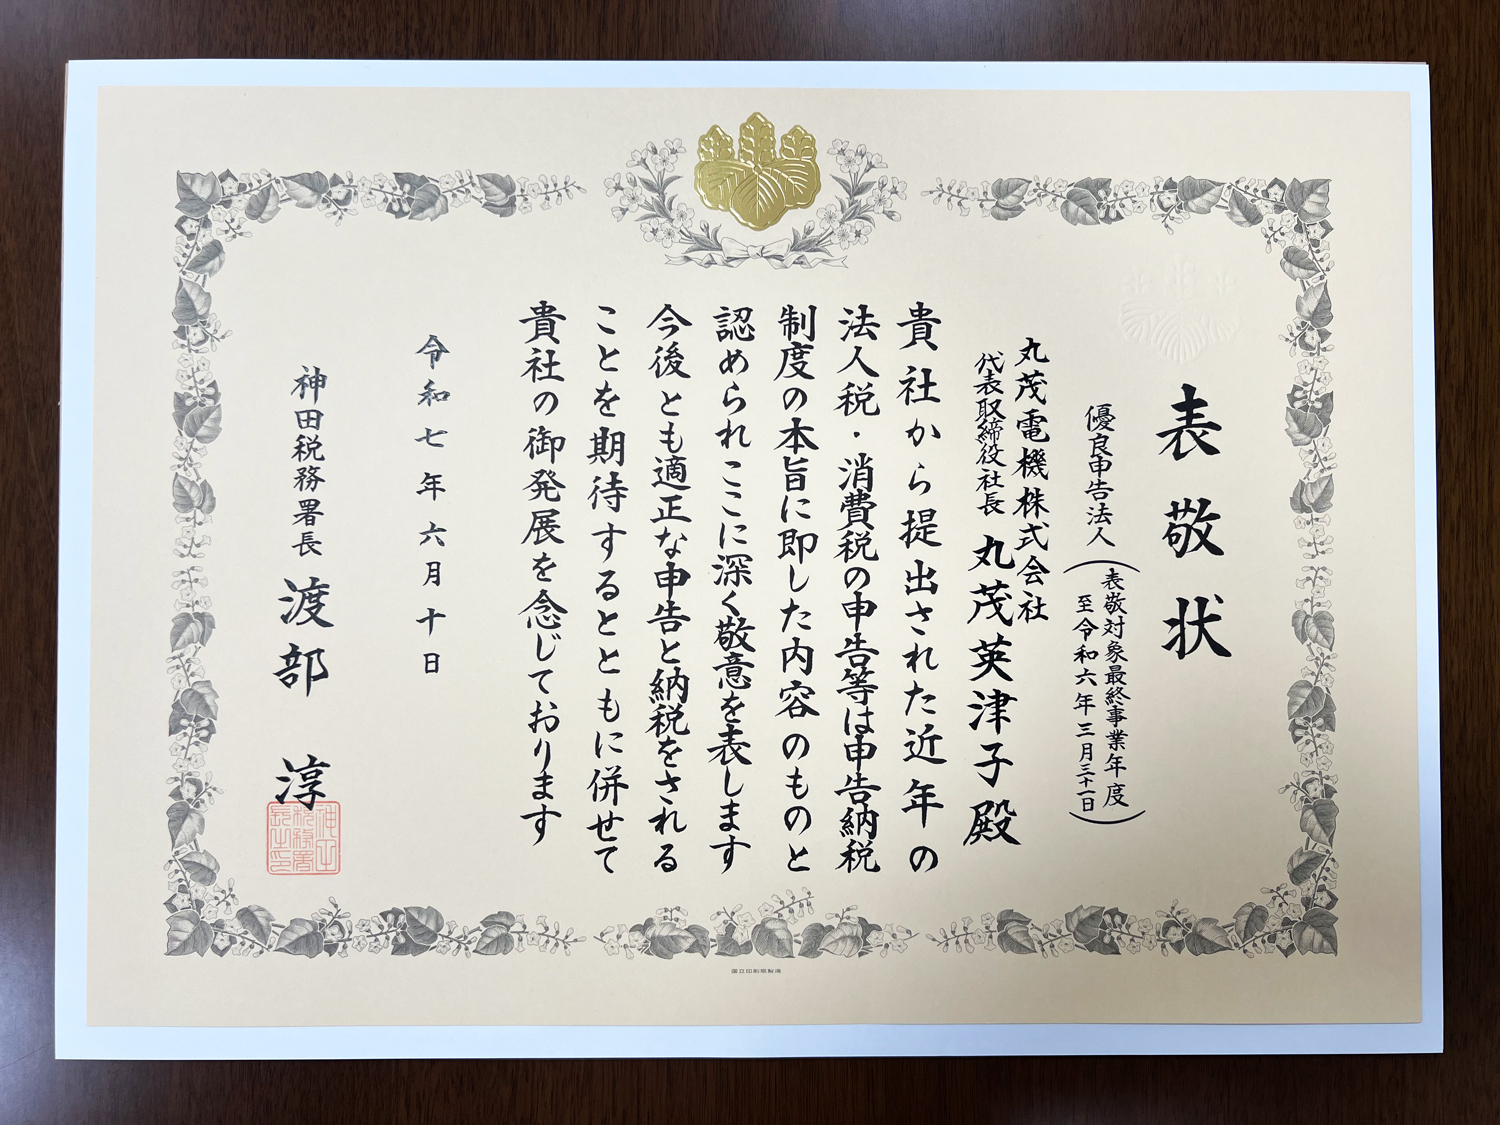 表敬状
優良申告法人
(表敬対象最終事業年度
至令和六年三月三十一日)
丸茂電機株式会社
代表取締役社長 丸茂英津子殿
貴社から提出された近年の
法人税・消費税の申告等は申告納税
制度の本旨に即した内容のものと
認められここに深く敬意を表します
今後とも適正な申告と納税をされる
ことを期待するとともに併せて
貴社の御発展を念じております
令和七年六月十日
神田税務署長 渡部 淳
神田
税務署
長之印
国立印刷局製造